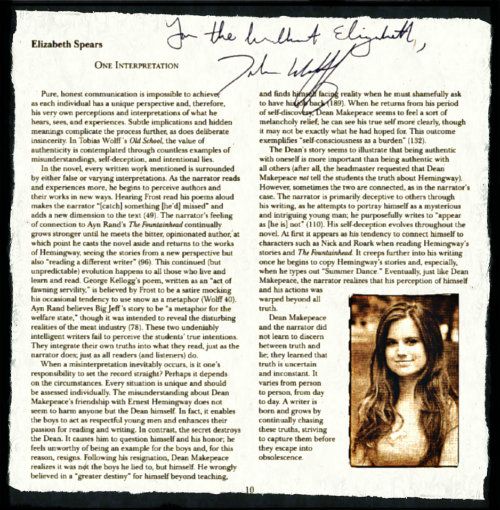 For the brilliant Elizabeth,
Tobias Wolff
Elizabeth Spears
ONE INTERPRETATION
Pure, honest communication is impossible to achieve,
as each individual has a unique perspective and, therefore,
his very own perceptions and interpretations of what he
hears, sees, and experiences. Subtle implications and hidden
meanings complicate the process further, as does deliberate
insincerity. In Tobias Wolff's Old School, the value of
authenticity is contemplated through countless examples of
misunderstandings, self-deception, and intentional lies.
In the novel, every written work mentioned is surrounded
by either false or varying interpretations. As the narrator reads
and experiences more, he begins to perceive authors and
their works in new ways. Hearing Frost read his poems aloud
makes the narrator "[catch] something [he'd] missed" and
adds a new dimension to the text (49). The narrator's feeling
of connection to Ayn Rand's The Fountainhead continually
grows stronger until he meets the bitter, opinionated author, at
which point he casts the novel aside and returns to the works
of Hemingway, seeing the stories from a new perspective but
also "reading a different writer" (96). This continued (but
unpredictable) evolution happens to all those who live and
learn and read. George Kellogg's poem, written as an "act of
fawning servility," is believed by Frost to be a satire mocking
his occasional tendency to use snow as a metaphor (Wolff 40).
Ayn Rand believes Big Jeff's story to be "a metaphor for the
welfare state," though it was intended to reveal the disturbing
realities of the meat industry (78). These two undeniably
intelligent writers fail to perceive the students' true intentions.
They integrate their own truths into what they read, just as the
narrator does; just as all readers (and listeners) do.
When a misinterpretation inevitably occurs, is it one's
responsibility to set the record straight? Perhaps it depends
on the circumstances. Every situation is unique and should
be assessed individually. The misunderstanding about Dean
Makepeace's friendship with Ernest Hemingway does not
seem to harm anyone but the Dean himself. In fact, it enables
the boys to act as respectful young men and enhances their
passion for reading and writing. In contrast, the secret destroys
the Dean. It causes him to question himself and his honor; he
feels unworthy of being an example for the boys and, for this
reason, resigns. Following his resignation, Dean Makepeace
realizes it was not the boys he lied to, but himself. He wrongly
believed in a "greater destiny" for himself beyond teaching,
and finds himself facing reality when he must shamefully ask
to have his job back (189). When he returns from his period
of self-discovery, Dean Makepeace seems to feel a sort of
melancholy relief, he can see his true self more clearly, though
it may not be exactly what he had hoped for. This outcome
exemplifies "self-consciousness as a burden" (132).
The Dean's story seems to illustrate that being authentic
with oneself is more important than being authentic with
all others (after all, the headmaster requested that Dean
Makepeace not tell the students the truth about Hemingway).
However, sometimes the two are connected, as in the narrator's
case. The narrator is primarily deceptive to others through
his writing, as he attempts to portray himself as a mysterious
and intriguing young man; he purposefully writes to "appear
as [he is] not" (110). His self-deception evolves throughout the
novel. At first it appears as his tendency to connect himself to
characters such as Nick and Roark when reading Hemingway's
stories and The Fountainhead. It creeps further into his writing
once he begins to copy Hemingway's stories and, especially,
when he types out "Summer Dance." Eventually, just like Dean
Makepeace, the narrator realizes that his perception of himself
and his actions was
warped beyond all
truth.
Dean Makepeace
and the narrator did
not learn to discern
between truth and
lie; they learned that
truth is uncertain
and inconstant. It
varies from person
to person, from day
to day. A writer is
born and grows by
continually chasing
these truths, striving
to capture them before
they escape into
obsolescence.
10